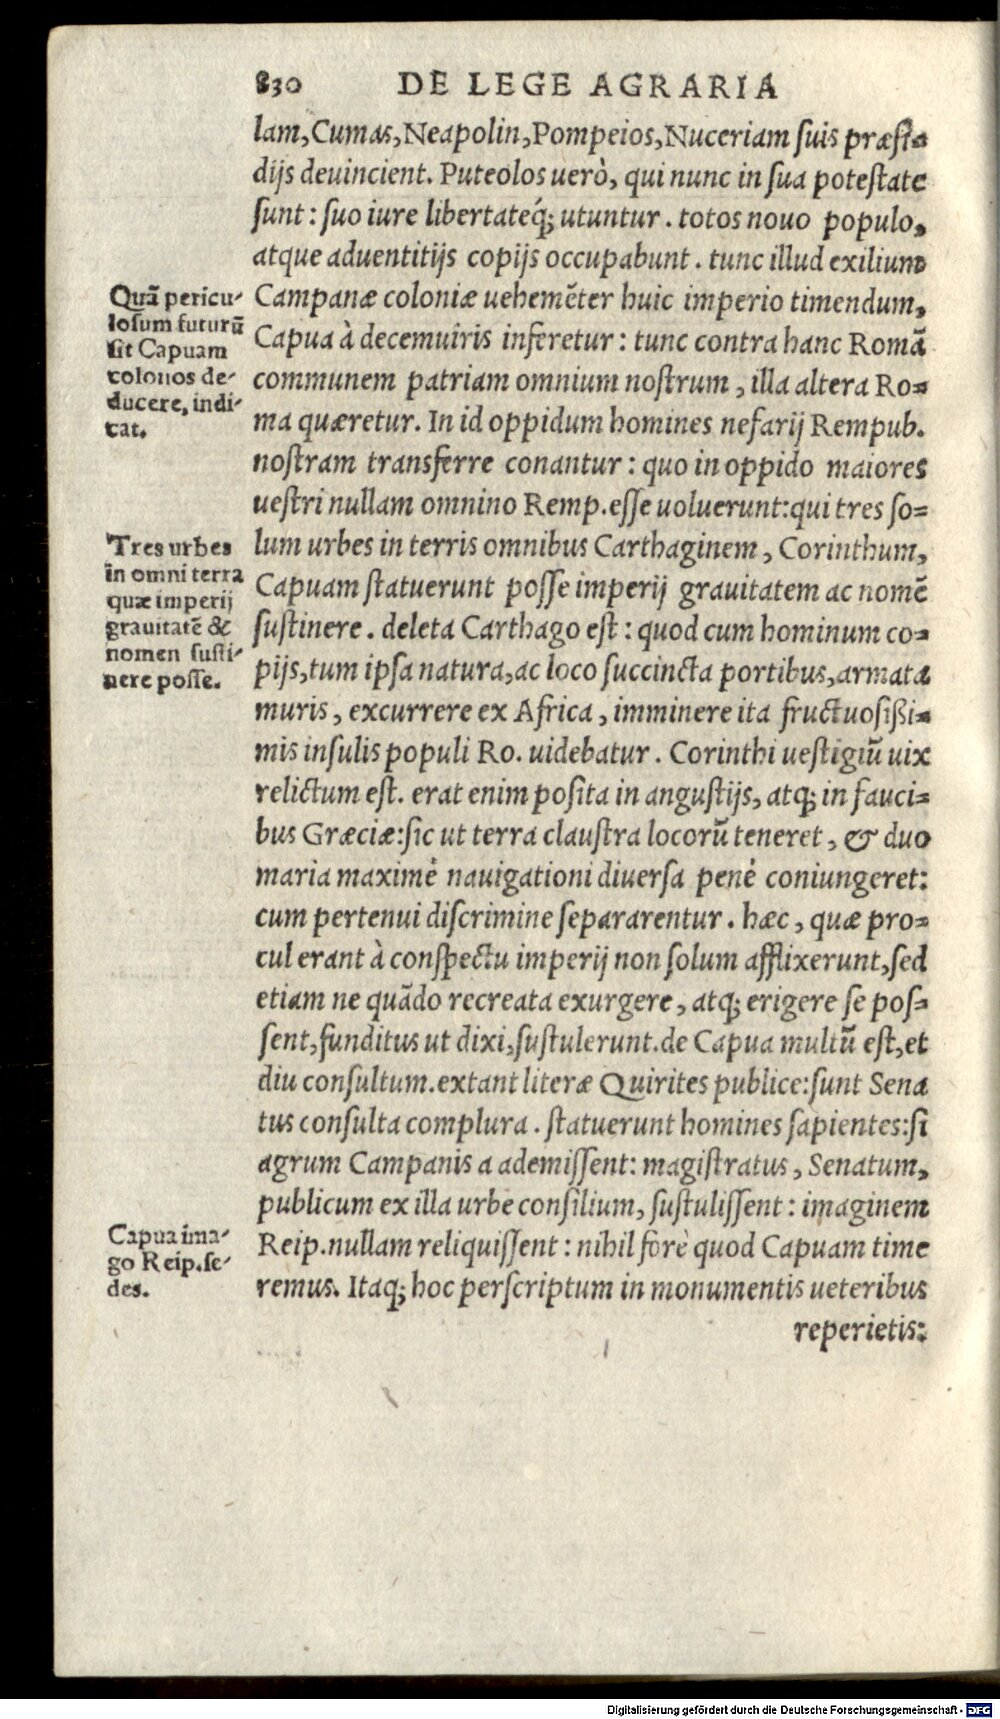 830 DE LEGE AGRARIA
lam, Cumas, Neapolin, Pompeios, Nuceriam suis præsi=
dijs deuincient. Puteolos uerò, qui nunc in sua potestate
sunt: suo iure libertateq́; utuntur. totos nouo populo,
atque aduentitijs copijs occupabunt. tunc illud exilium
Campanæ coloniæ uehemẽter huic imperio timendum,
Capua à decemuiris inferetur: tunc contra hanc Romã
communem patriam omnium nostrum, illa altera Ro=
ma quæretur. In id oppidum homines nefarij Rempub.
nostram transferre conantur: quo in oppido maiores
uestri nullam omnino Remp. esse uoluerunt: qui tres so=
lum urbes in terris omnibus Carthaginem, Corinthum,
Capuam statuerunt posse imperij grauitatem ac nomẽ
sustinere. deleta Carthago est: quod cum hominum co=
pijs, tum ipsa natura, ac loco succincta portibus, armata
muris, excurrere ex Africa, imminere ita fructuosißi=
mis insulis populi Ro. uidebatur. Corinthi uestigiũ uix
relictum est. erat enim posita in angustijs, atq; in fauci=
bus Græciæ: sic ut terra claustra locorũ teneret, & duo
maria maximè nauigationi diuersa penè coniungeret:
cum pertenui discrimine separarentur. hæc, quæ pro=
cul erant à conspectu imperij non solum afflixerunt, sed
etiam ne quãdo recreata exurgere, atq; erigere se pos=
sent, funditus ut dixi, sustulerunt. de Capua multũ est, et
diu consultum. extant literæ Quirites publice: sunt Sena
tus consulta complura. statuerunt homines sapientes: si
agrum Campanis a ademissent: magistratus, Senatum,
publicum ex illa urbe consilium, sustulissent: imaginem
Reip. nullam reliquissent: nihil forè quod Capuam time
remus. Itaq; hoc perscriptum in monumentis ueteribus
reperietis:
Quã pericu-
losum futurũ
sit Capuam
colonos de-
ducere, indi-
cat.
Tres urbes
in omni terra
quæ imperij
grauitatẽ &
nomen susti-
nere posse.
Capua ima-
go Reip. se-
des.
Digitalisierung gefördert durch die Deutsche Forschungsgemeinschaft - DFG